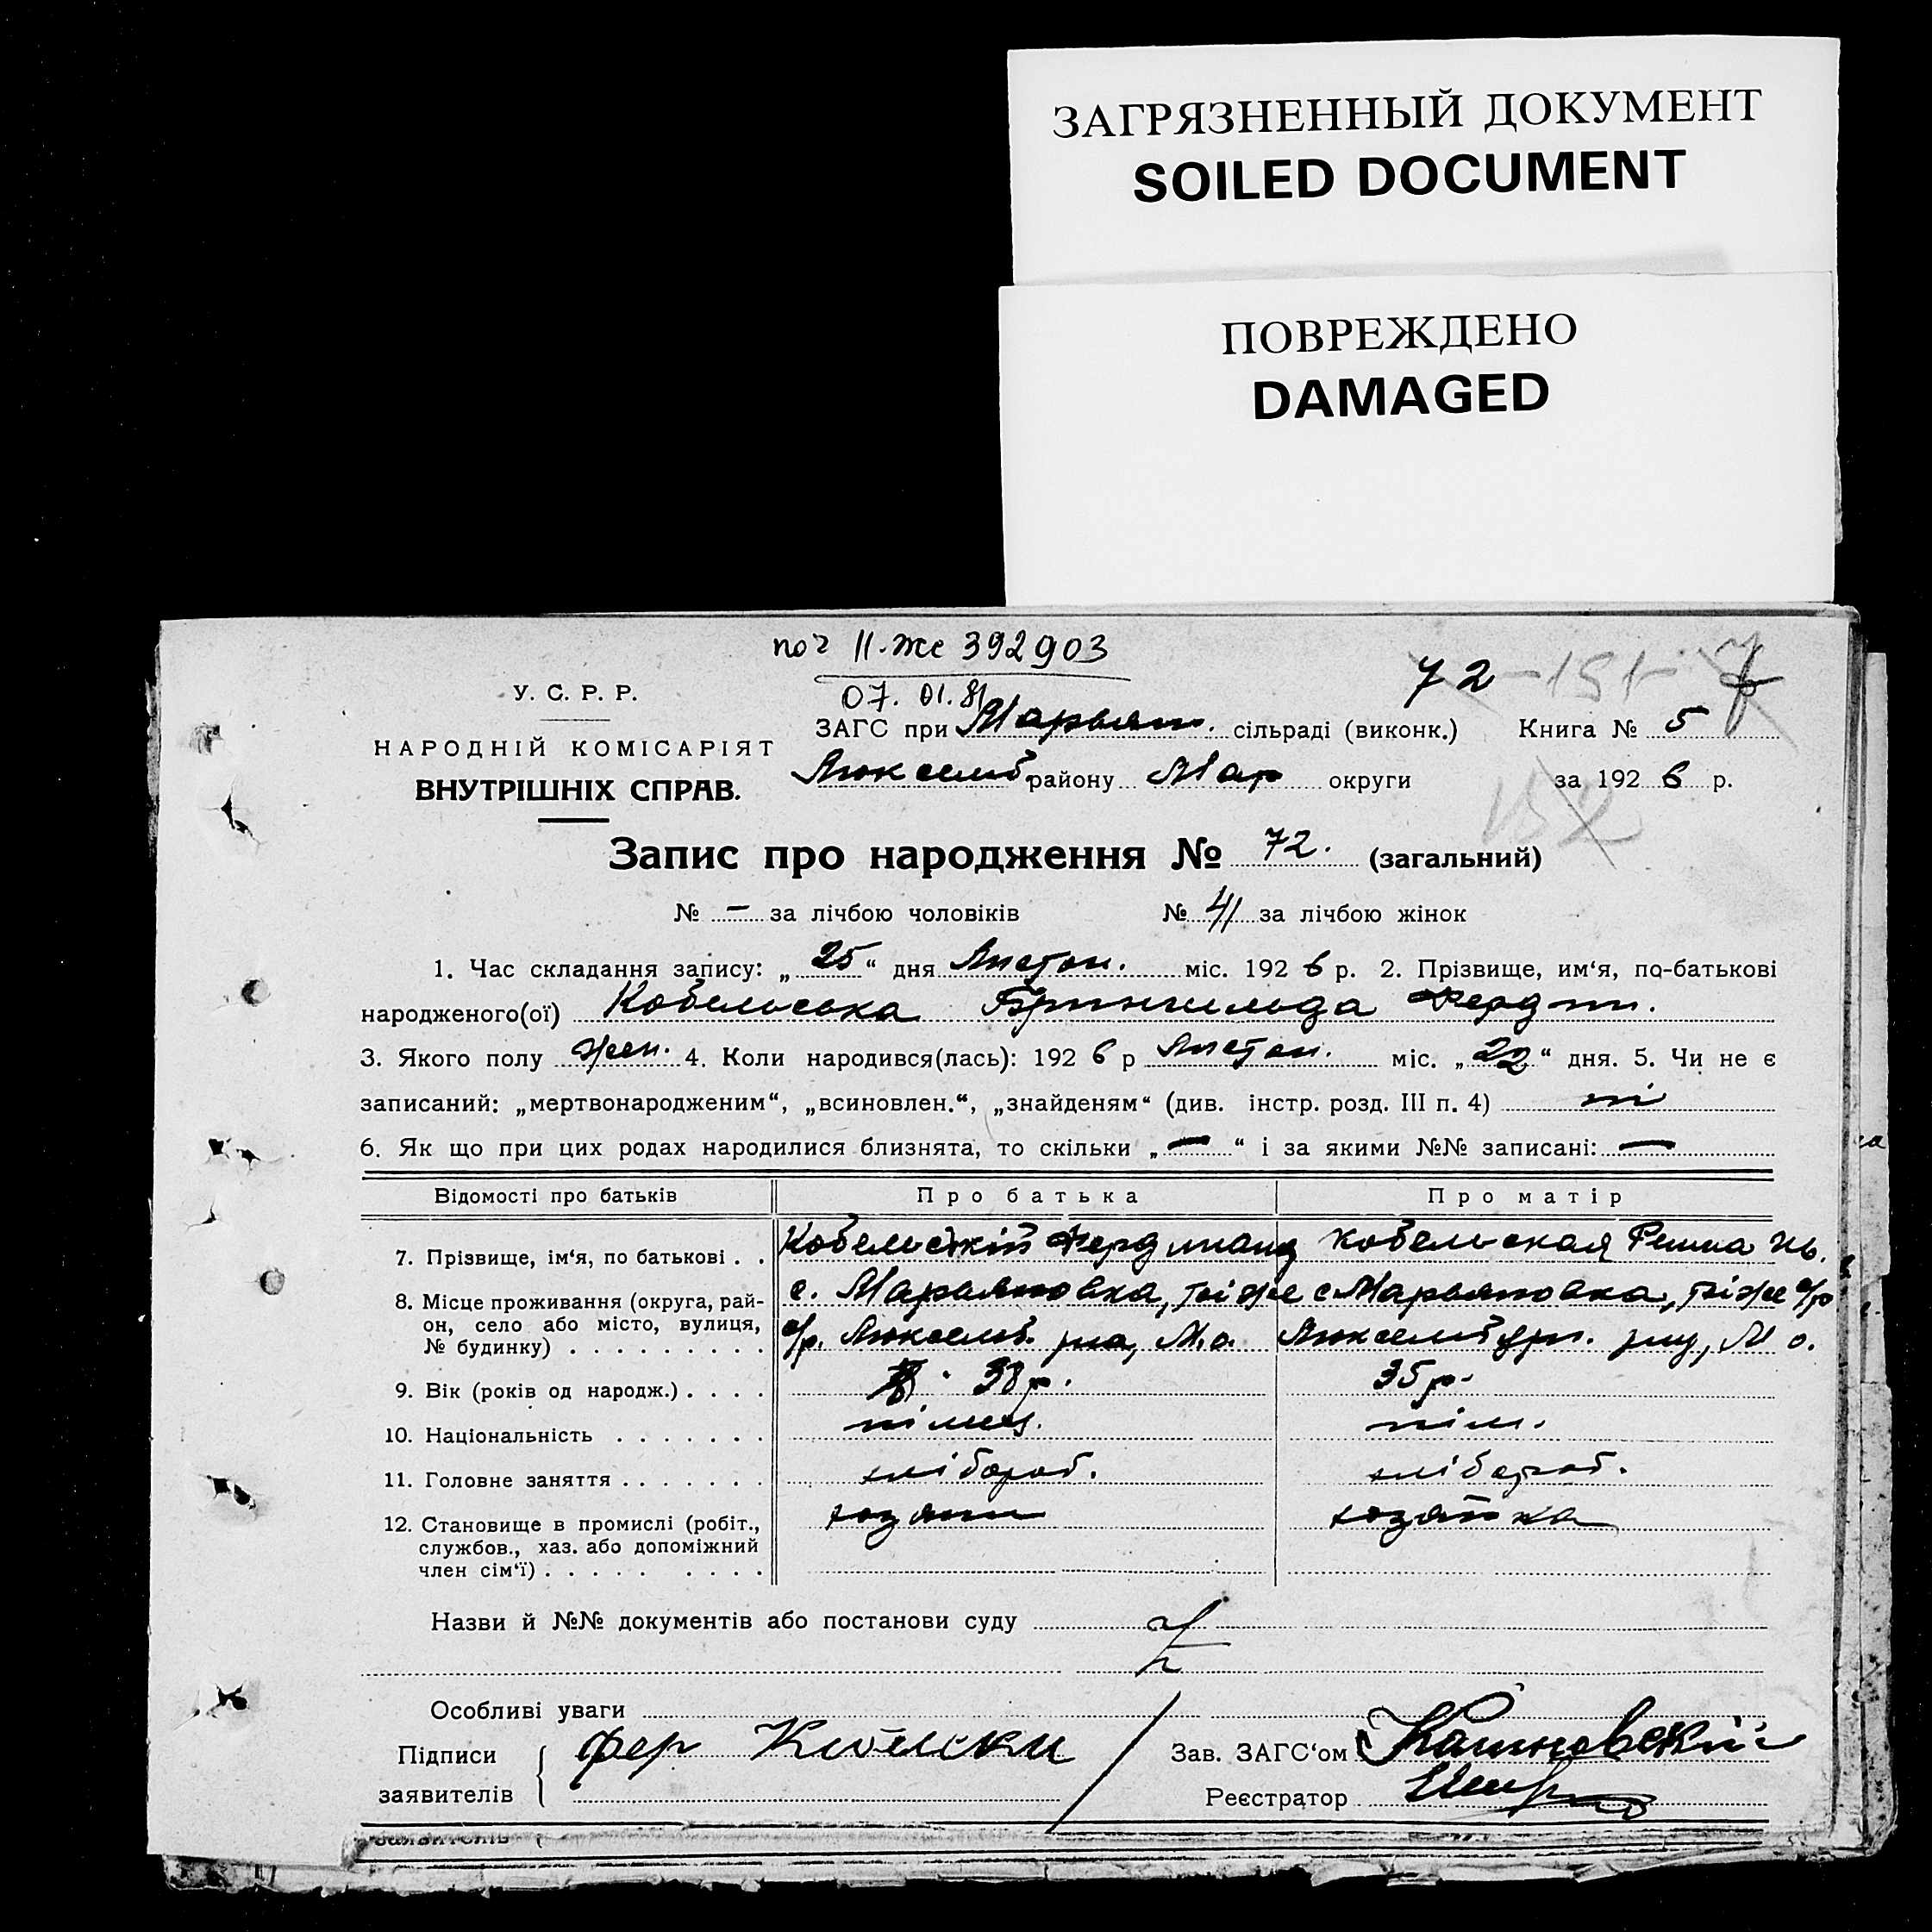 ЗАГРЯЗНЕННЫЙ ДОКУМЕНТ
SOILED DOCUMENT
ПОВРЕЖДЕНО
DAMAGED
392903
07. 01. 81
72
У. С. Р. Р.
НАРОДНІЙ КОМІСАРІЯТ
ВНУТРІШНІХ СПРАВ.
ЗАГС при Марьян. сільраді (виконк.) Книга № 5
Люксемб. району Мар округи за 192 6 р.
Запис про народження № 72. (загальний)
№ — за лічбою чоловіків № 41 за лічбою жінок
1. Час складання запису: „ 25 “ дня Листоп. міс. 192 6 р. 2. Прізвище, им‘я, по-батькові
народженого(ої) Кобельська Брингильда Фердин.
3. Якого полу жен. 4. Коли народився(лась): 192 6 р Листоп. міс. „ 22 “ дня. 5. Чи не є
записаний: „мертвонародженим“, „всиновлен.“, „знайденям“ (див. інстр. розд. III п. 4) ні
6. Як що при цих родах народилися близнята, то скільки „ — “ і за якими №№ записані: —
Відомості про батьків Про батька Про матір
7. Прізвище, ім‘я, по батькові . . Кобельскій Фердинанд Кобельская
8. Місце проживання (округа, рай-
он, село або місто, вулиця,
№ будинку) . . . . . . . . .
с. Марьяновка, тіїже с Марьяновка, тіїже с/р
с/р. Люксемб. р-на, М.о. Люксембург. р-ну, М о.
9. Вік (років од народж.) . . . . 38 р. 35 р.
10. Національність . . . . . . . німец. нім.
11. Головне заняття . . . . . . хлібороб. хлібороб.
12. Становище в промислі (робіт.,
службов., хаз. або допоміжний
член сім‘ї) . . . . . . . . .
хозяин хозяйка
Назви й №№ документів або постанови суду
Особливі уваги
Підписи
заявителів
Фер
Зав. ЗАГС‘ом
Реєстратор